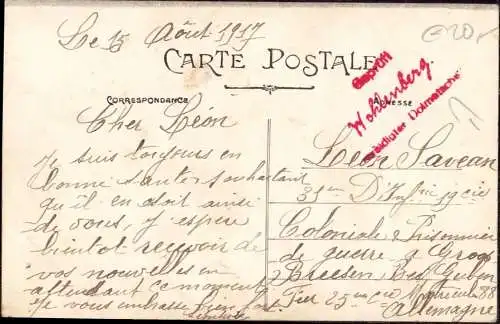 Le 15 Août 1917
€20,-
CARTE POSTALE
Geprüft
Wohlenberg
vereidigter Dolmetscher
CORRESPONDANCE
ADRESSE
Cher Léon
Je suis toujours en
bonne santer souhaitant
qu'il en soit ainsi
de vous, j espere
bientot recevoir de
vos nouvelles en
attendant ce moment
je vous embrasse bien fort
Léon Savean
31em D'Infrie 19 cie
Coloniale Prisonnier
de guerre a Gross
Breesen Bei Guben
25em cie Matricule 88
Allemagne